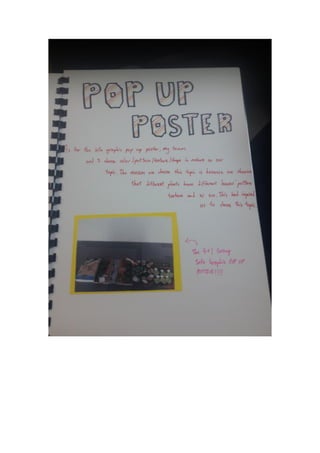 POP UP
POSTER
for the info graphic pop up poster, my teams
and I choose color/pattern/texture/shape in nature as our
topic. The reason we choose this topic is because we observe
that different plants have different leaves' pattern
texture and so on. This had inspired
us to choose this topic.
The
Info Graphic POP UP
POSTER!!!